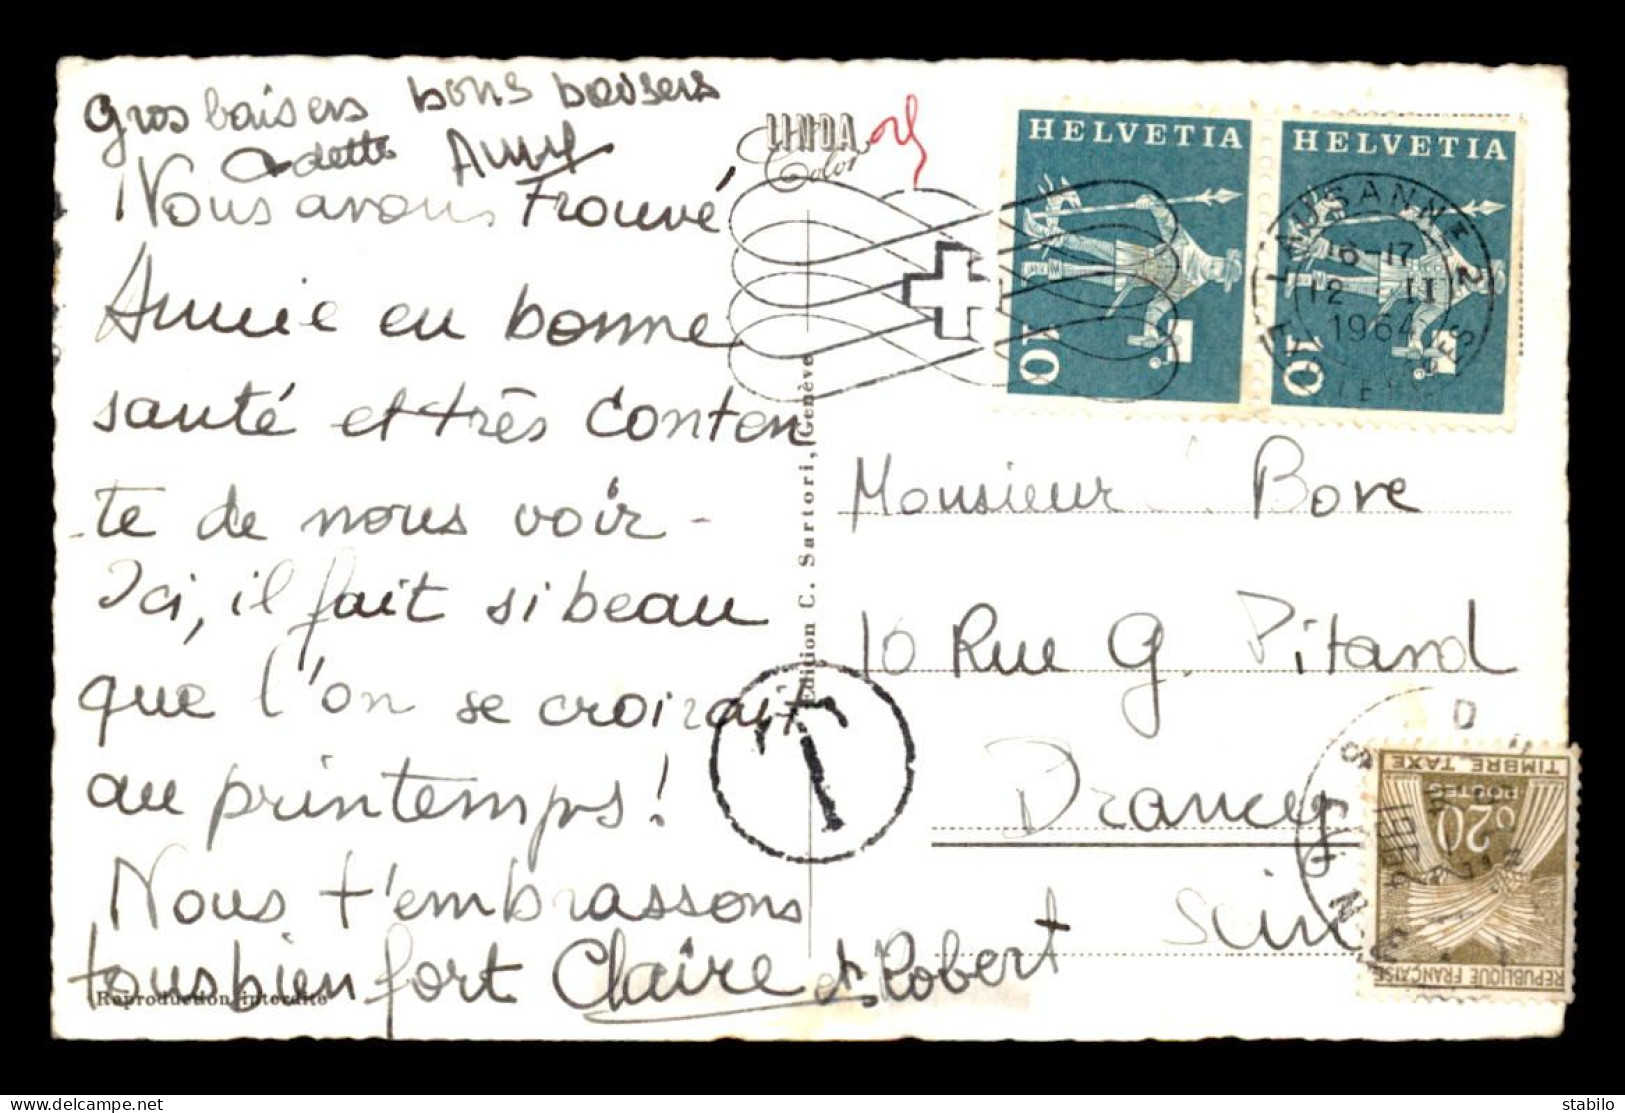 Gros baisers bons baisers
Odette
Nous avons trouvé
Annie en bonne
santé et très conten
te de nous voir -
Ici, il fait si beau
que l'on se croirait
au printemps !
Nous t'embrassons
tous bien fort Claire et Robert
Reproduction interdite
LINDA
Color
Edition C. Sartori, Genève
T
HELVETIA
10
HELVETIA
10
LAUSANNE 2
16-17
12 II
1964
Monsieur Bore
10 Rue G. Pitard
Drancy
Seine
TIMBRE TAXE
POSTES
0,20
REPUBLIQUE FRANÇAISE
1964
stabilo
delcampe.net